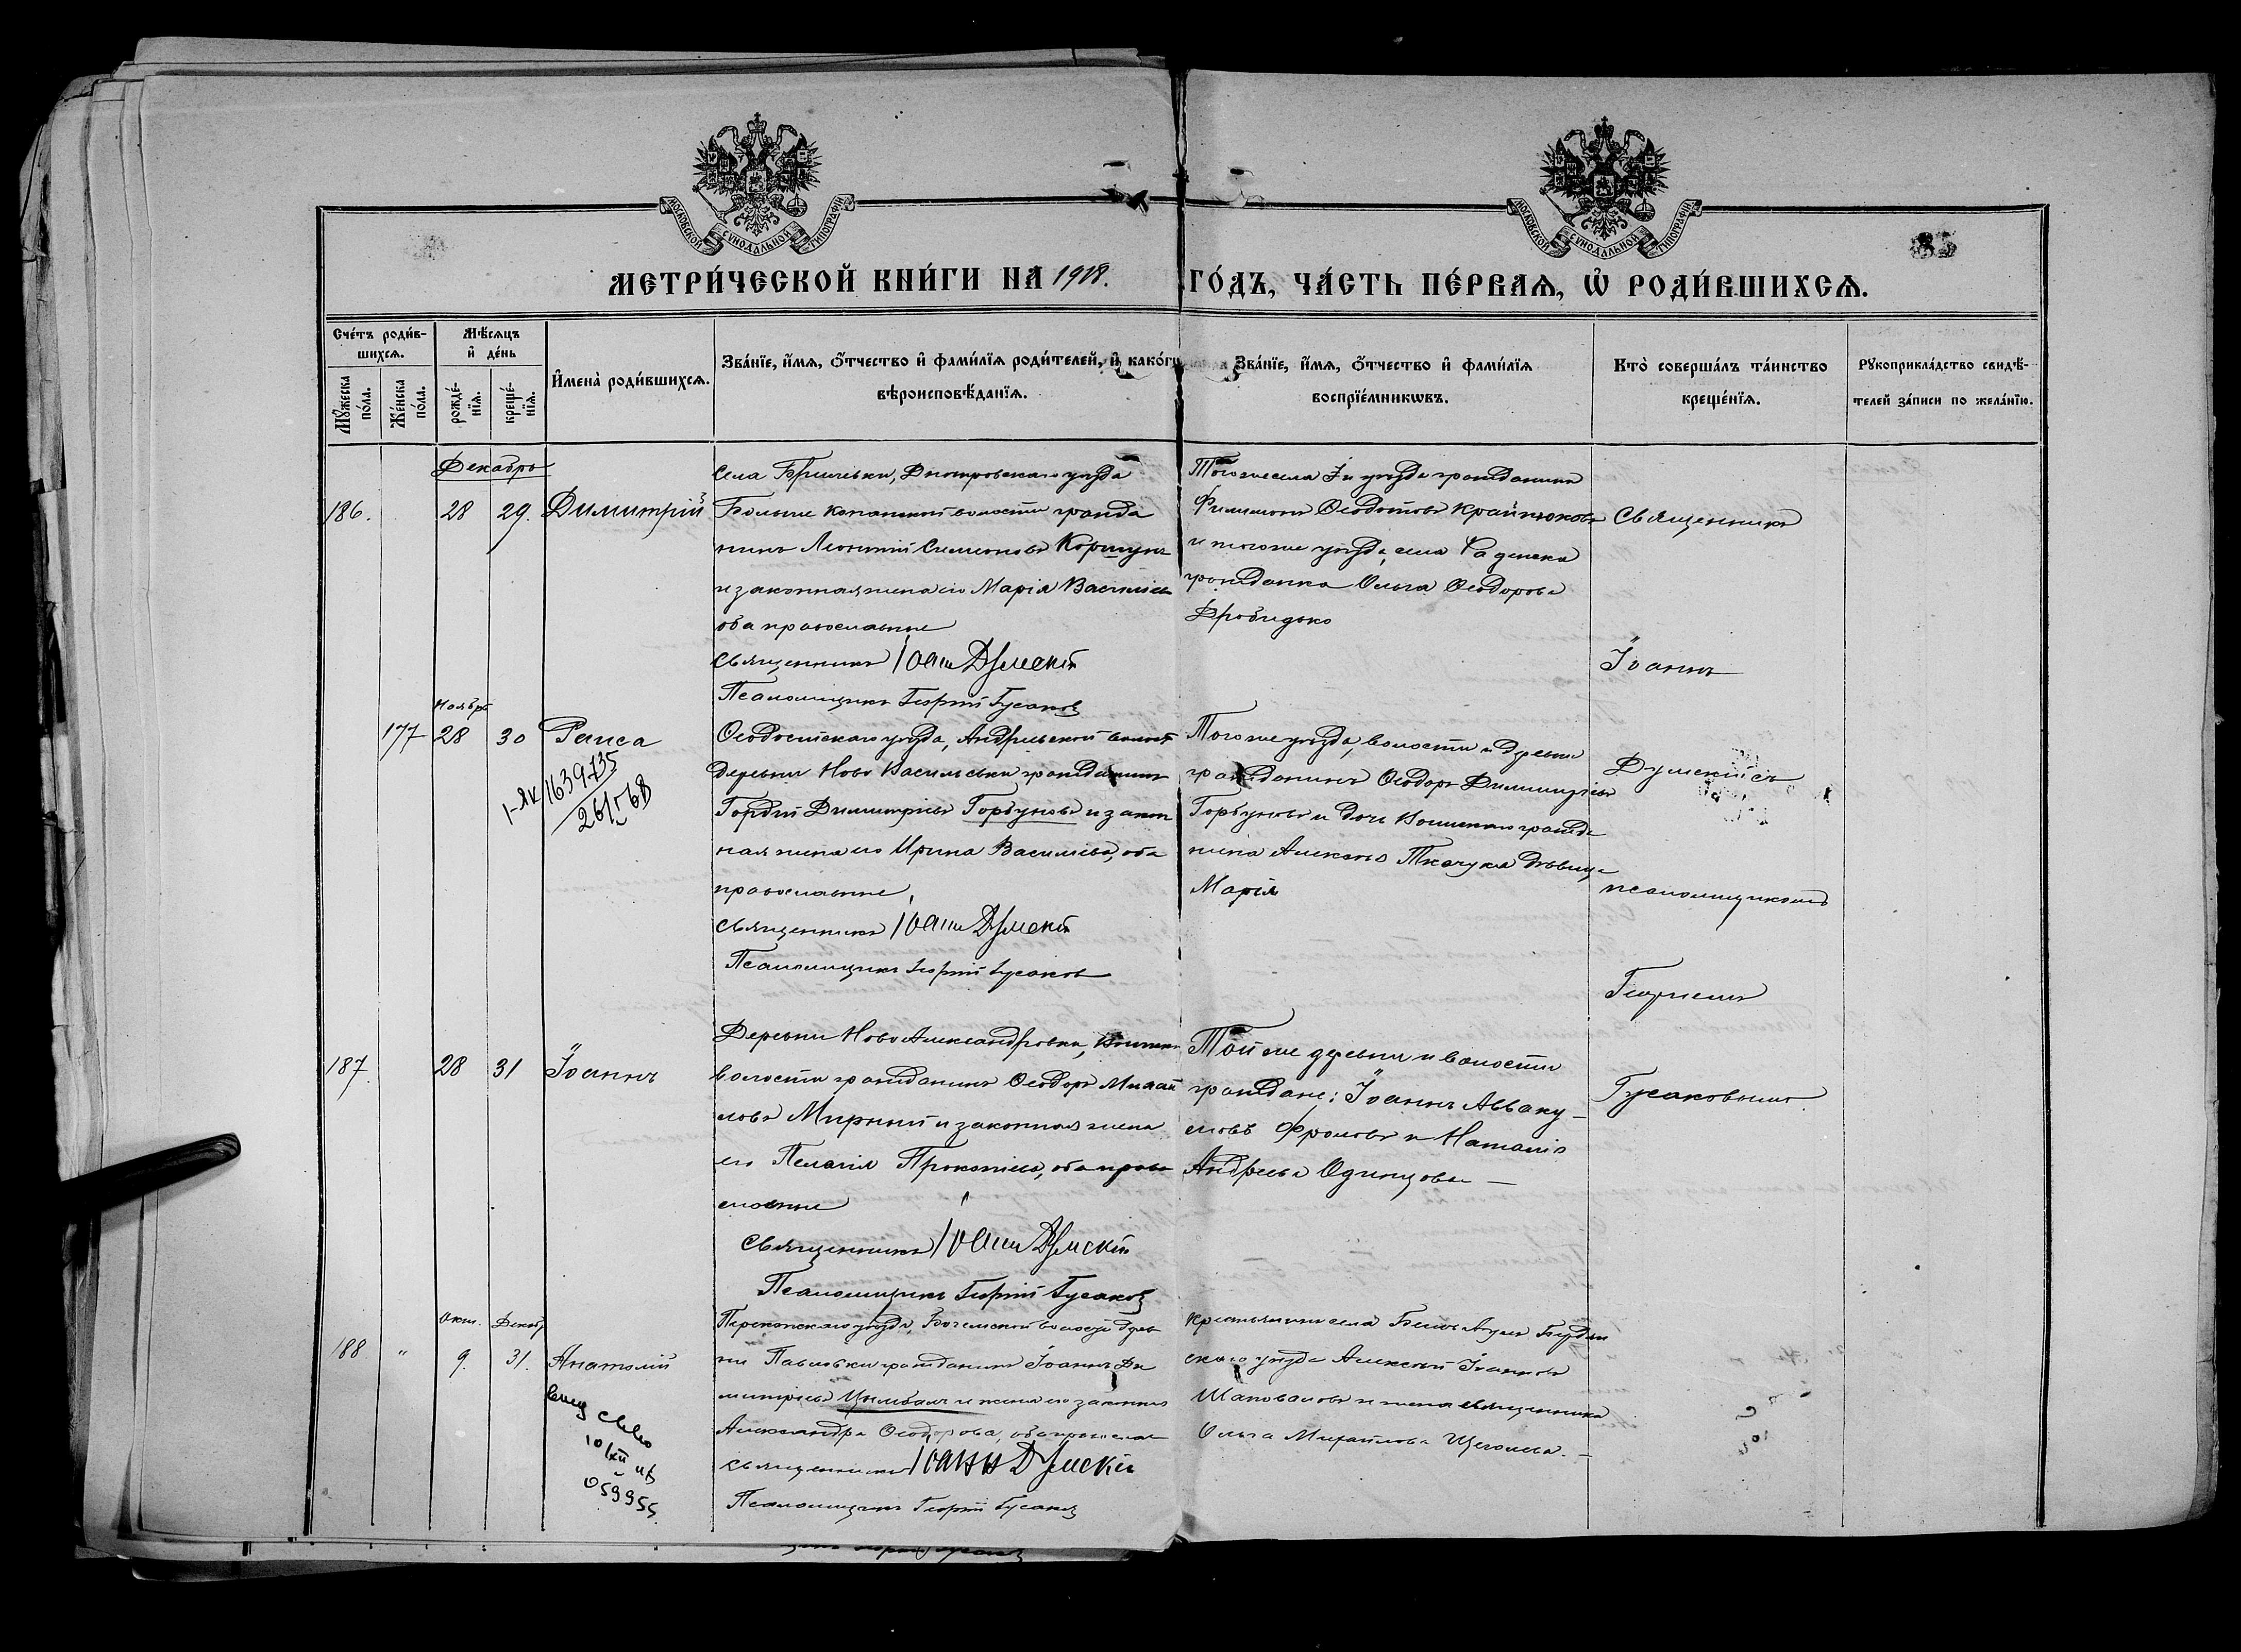 МОСКОВСКОЙ СУНОДАЛЬНОЙ ТИПОГРАФІИ
МОСКОВСКОЙ СУНОДАЛЬНОЙ ТИПОГРАФІИ
85
МЕТРИ́ЧЕСКОЙ КНИ́ГИ НА 1918.
ГО́ДЪ, ЧА́СТЬ ПЕ́РВАѦ, Ѡ҆ РОДИ́ВШИХСѦ.
Сче́тъ роди́в-
шихсѧ.
Мꙋ́жеска по́ла.
Же́нска по́ла.
Мѣ́сѧцъ
и҆ де́нь
рожде́-
нїѧ.
креще́-
нїѧ.
И҆мена̀ роди́вшихсѧ.
Зва́нїе, и҆́мѧ, ѻ҆́тчество и҆ фами́лїѧ роди́телей, и҆ како́гѡ
вѣроисповѣ́данїѧ.
Зва́нїе, и҆́мѧ, ѻ҆́тчество и҆ фами́лїѧ
воспрїе́мникѡвъ.
Кто̀ соверша́лъ та́инство
креще́нїѧ.
Рꙋкоприкла́дство свидѣ́-
телей за́писи по жела́нїю.
Декабрь
186.
28
29.
Димитрій
Села Днепровскаго уѣзда
волости гражда
нинъ Леонтій Симеоновъ Коршунъ
и законная жена его Марія Василіева
оба православные
Священникъ Іоаннъ Думскій
Псаломщикъ Георгій Гусаковъ
Того же села и уѣзда гражданинъ
Филимонъ Ѳеодотовъ
и того же уѣзда, села
гражданка Ольга Ѳеодорова
Священникъ
Іоаннъ
Ноябрь
177
28
30
Раиса
1639735
Ѳеодосійскаго уѣзда, волости
деревни Ново Васильевки гражданинъ
Гордій Димитріевъ Горбуновъ и закон
ная жена его Ирина Василіева, оба
православные
Священникъ Іоаннъ Думскій
Псаломщикъ Георгій Гусаковъ
Того же уѣзда, волости и деревни
гражданинъ Ѳеодоръ Димитріевъ
Горбуновъ и дочь гражда
нина Ткачука дѣвица
Марія
Думскій съ
псаломщикомъ
Георгіемъ
187.
28
31
Іоаннъ
Деревни Ново Александровки,
волости гражданинъ Ѳеодоръ Михай
ловъ Мирный и законная жена
его Пелагія Прокопіева, оба право
славные
Священникъ Іоаннъ Думскій
Псаломщикъ Георгій Гусаковъ
Той же деревни и волости
граждане: Іоаннъ Авваку-
мовъ Фроловъ и Наталія
Андреева Одинцова —
Гусаковымъ.
Окт.
Декабр
188
"
9.
31.
Анатолій
059955
Перекопскаго уѣзда, волости дерев
ни Павловки гражданинъ Іоаннъ Ди
митріевъ Цымбалъ и жена его законная
Александра Ѳеодорова, оба православ
Священникъ Іоаннъ Думскій
Псаломщикъ Георгій Гусаковъ
Крестьянинъ села Бердян
скаго уѣзда Алексей Іоанновъ
Шаповаловъ и жена священника
Ольга Михайлова